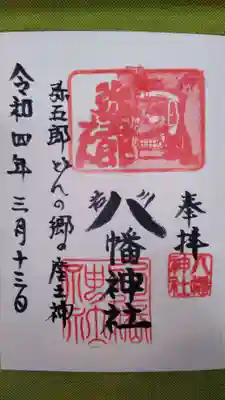 奉拝
八幡神社
弥五郎
岩川
八幡神社
弥五郎どんの郷の産土神
令和四年三月十三日